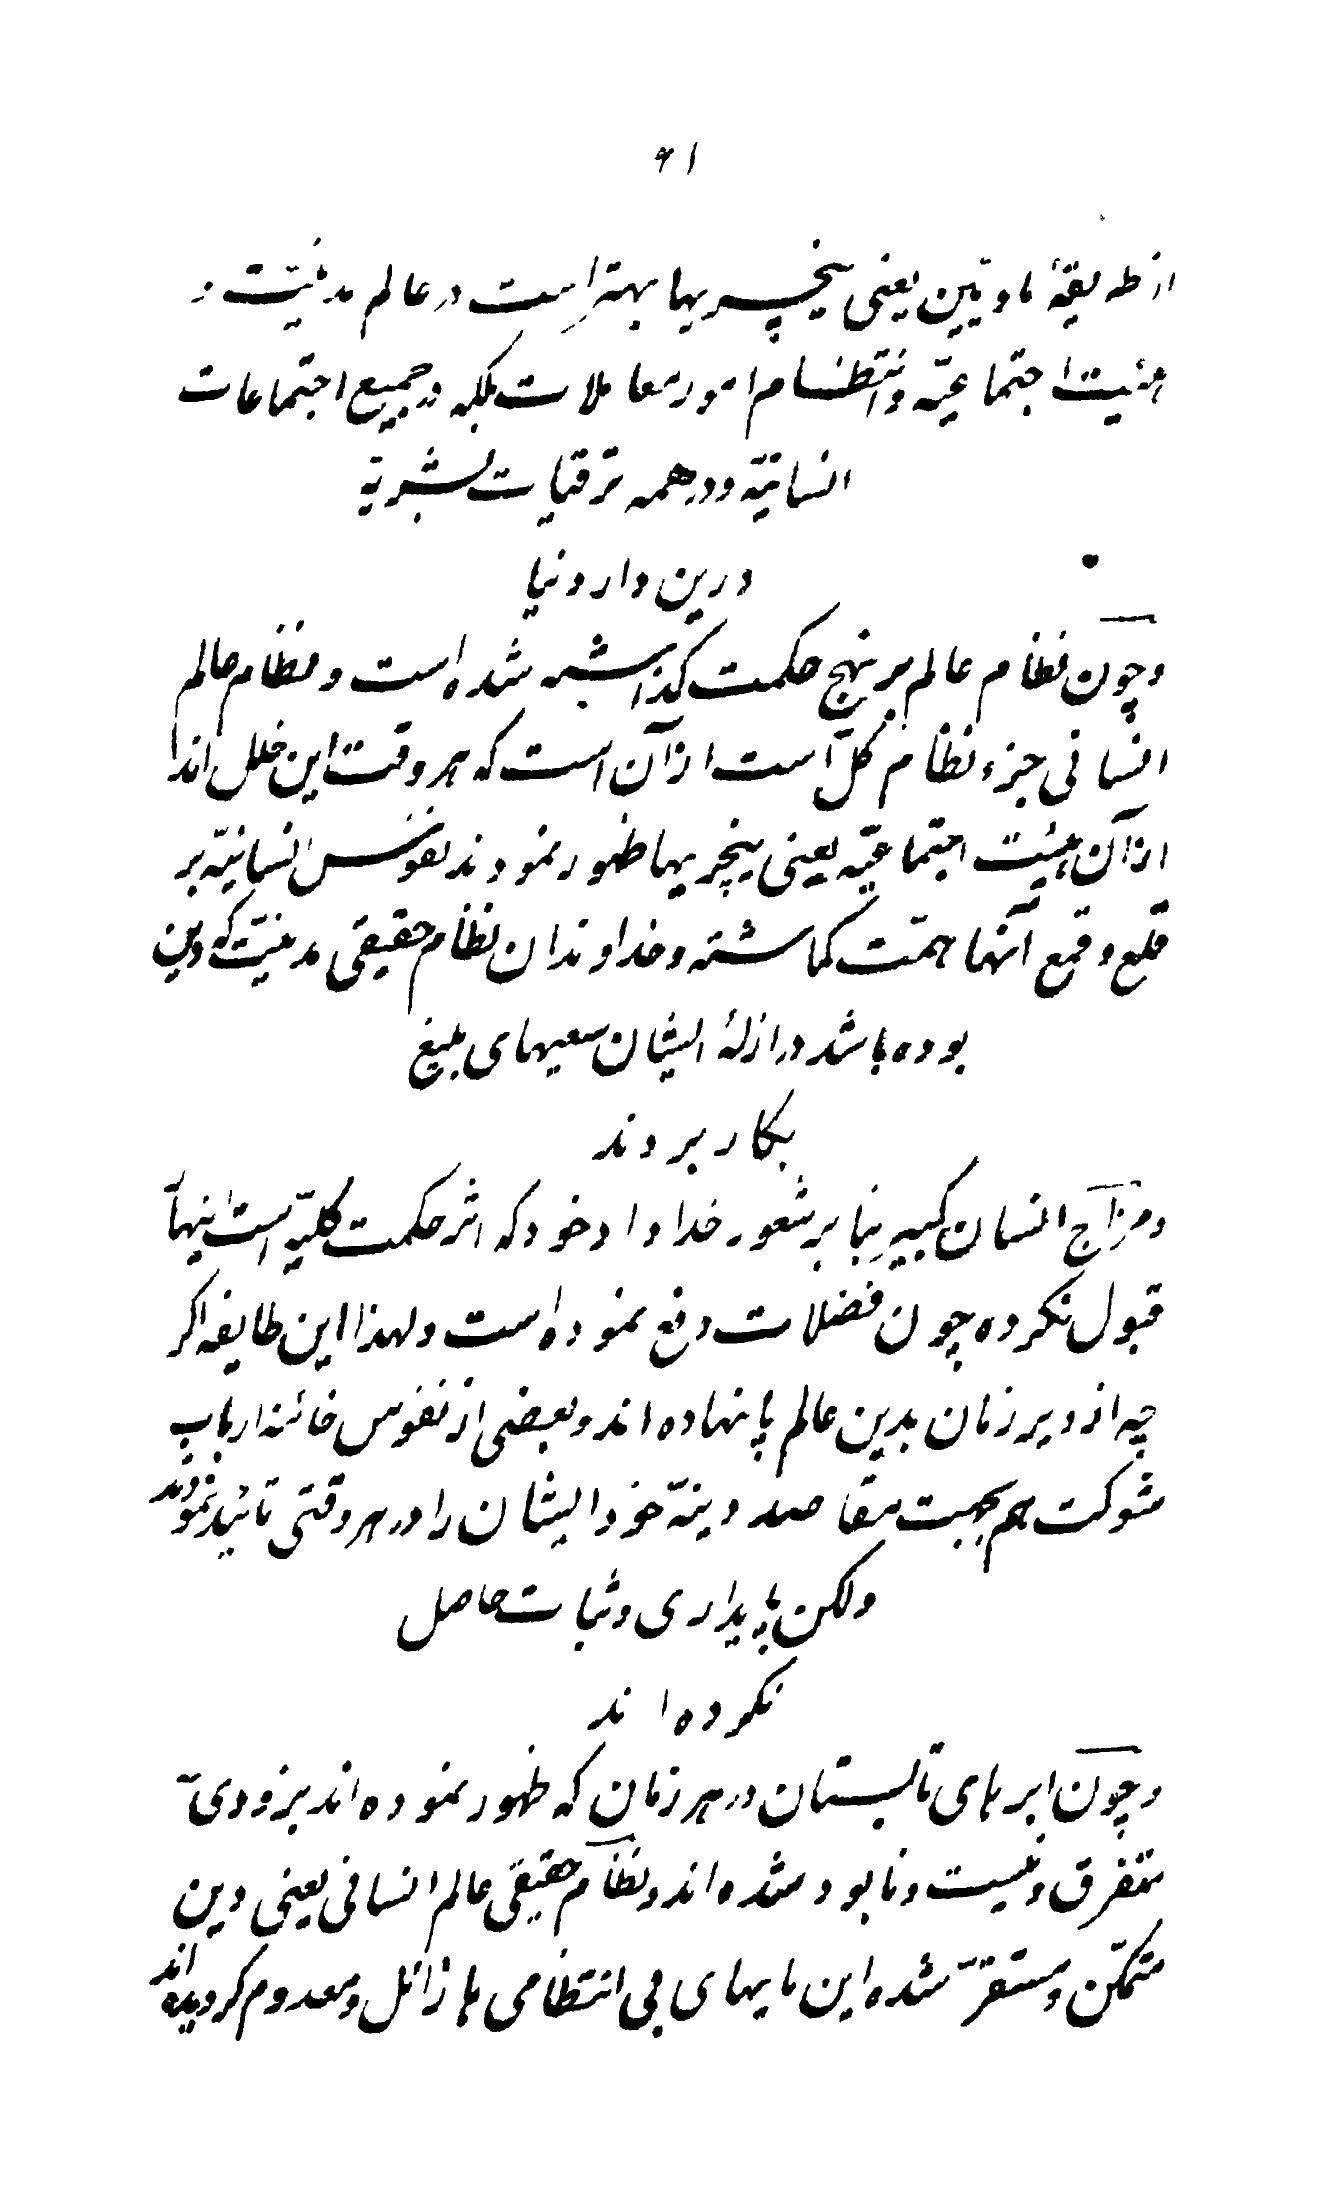 ۶۱
از طریقهٔ مادیین یعنی نیچریها بهتر است در عالم مدنیّت و
هیئت اجتماعیّه و انتظام امور معاملات بلکه در جمیع اجتماعات
انسانیّه و در همه ترقیات بشریّه
درین دار دنیا
و چون نظام عالم بر نهج حکمت گذاشته شده است و نظام عالم
انسانی جزء نظام کلّ است از آن است که هر وقت این خلل اندازان
از آن هیئت اجتماعیّه یعنی نیچریها ظهور نمودند نفوس انسانیّه بر
قلع و قمع آنها همّت گماشته و خداوندان نظام حقیقی مدنیّت که دین
بوده باشد در ازلهٔ ایشان سعیهای بلیغ
بکار بردند
و مزاج انسان کبیر بنابر شعور خداداد خود که اثر حکمت کلیّه است اینها را
قبول نکرده چون فضلات دفع نموده است و لهذا این طایفه اگر
چه از دیر زمان بدین عالم پا نهاده اند و بعضی از نفوس خائنه ارباب
شوکت هم بجهت مقاصد دینهٔ خود ایشان را در هر وقتی تائید نمودند
ولکن پایداری و ثبات حاصل
نکرده اند
و چون ابرهای تابستان در هر زمان که ظهور نموده اند بزودی
متفرق و نیست و نابود شده اند و نظام حقیقی عالم انسانی یعنی دین
متمکّن و مستقرّ شده این مایهای بی انتظامی ها زائل و معدوم گردیده اند